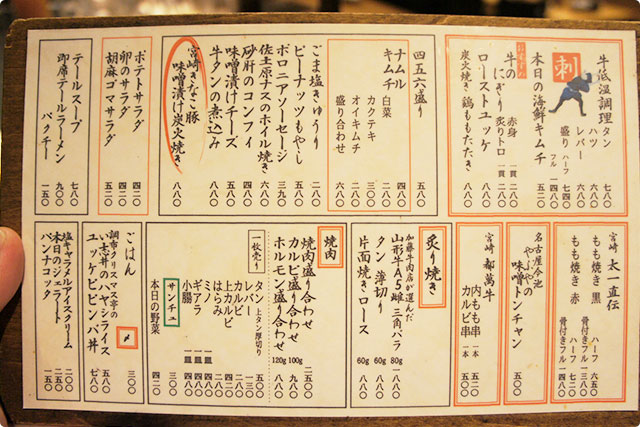 刺
牛低温調理
タン 七八〇
ハツ 七八〇
レバー 七八〇
盛り ハーフ 七四〇
フル 一四八〇
本日の海鮮キムチ 五八〇
おすすめ
牛のにぎり 赤身 一貫 二八〇
炙りトロ 一貫 二八〇
ローストユッケ 八八〇
炭火焼き鶏ももたたき 八八〇
四五六盛り 五八〇
ナムル 四八〇
キムチ 白菜 二八〇
カクテキ 二八〇
オイキムチ 三八〇
盛り合わせ 六八〇
ごま塩きゅうり 二八〇
ピーナッツもやし 二八〇
ボロニアソーセージ 三九〇
佐土原ナスのホイル焼き 六八〇
砂肝のコンフィ 四八〇
味噌漬けチーズ 五八〇
牛タンの煮込み 八八〇
宮崎きなこ豚
味噌漬け炭火焼き 八八〇
ポテトサラダ 四二〇
卵のサラダ 四二〇
胡麻ゴマサラダ 五二〇
テールスープ 七八〇
即席テールラーメン 九〇〇
パクチー 一五〇
宮崎 太一直伝
もも焼き 黒 ハーフ 六五〇
骨付きフル 一三八〇
もも焼き 赤 ハーフ 七八〇
骨付きフル 一四八〇
名古屋今池
やじやの
味噌トンチャン 五五〇
宮崎 都萬牛
内もも串 一本 五五〇
カルビ串 一本 五〇〇
炙り焼き
加藤牛肉店が選んだ
山形牛A5雌 三角バラ 80g 一八八〇
タン 薄切り 60g 八八〇
片面焼きロース 60g 八八〇
焼肉
焼肉盛り合わせ 二五〇〇
カルビ盛り合わせ 100g 九八〇
ホルモン盛り合わせ 120g 八八〇
一枚売り
タン 上タン厚切り 一五〇
レバー 一五〇
カルビ 二〇〇
上カルビ 二八〇
はらみ 二八〇
ミノ 一皿 四八〇
ギアラ 一皿 四八〇
小腸 一皿 四八〇
サンチュ 三〇〇
本日の野菜 四二〇
〆
ごはん 三〇〇
調布クリスマス亭の
い志井のハヤシライス 五七〇
ユッケビビンバ丼 七八〇
塩キャラメルアイスクリーム 二五〇
本日のジェラート 二五〇
パンナコッタ 二〇〇